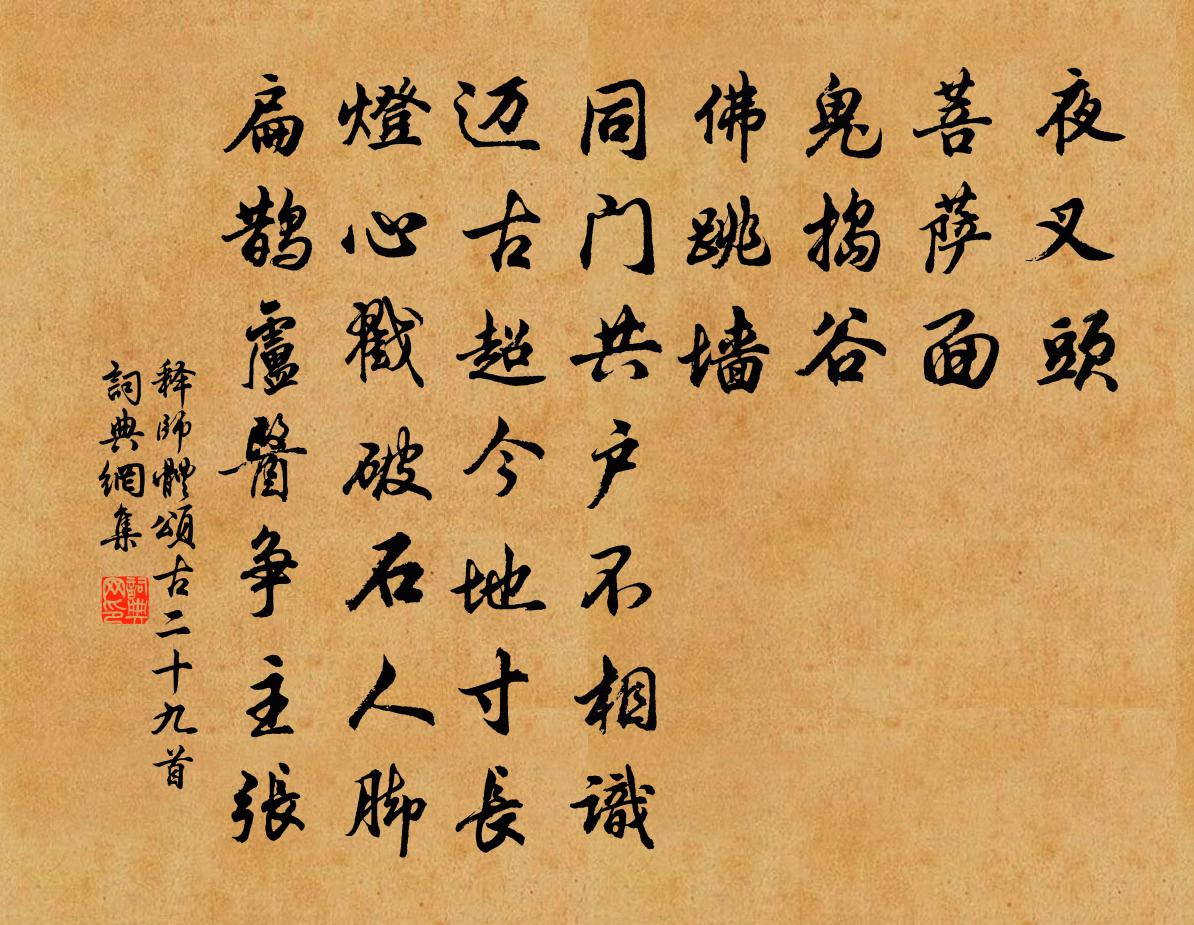 夜叉頭
菩萨面
鬼搗谷
佛跳墙
同门共户不相識
迈古超今地寸長
燈心戳破石人脚
扁鵲盧醫争主張
释師體頌古二十九首
詞典網集
詞典網印